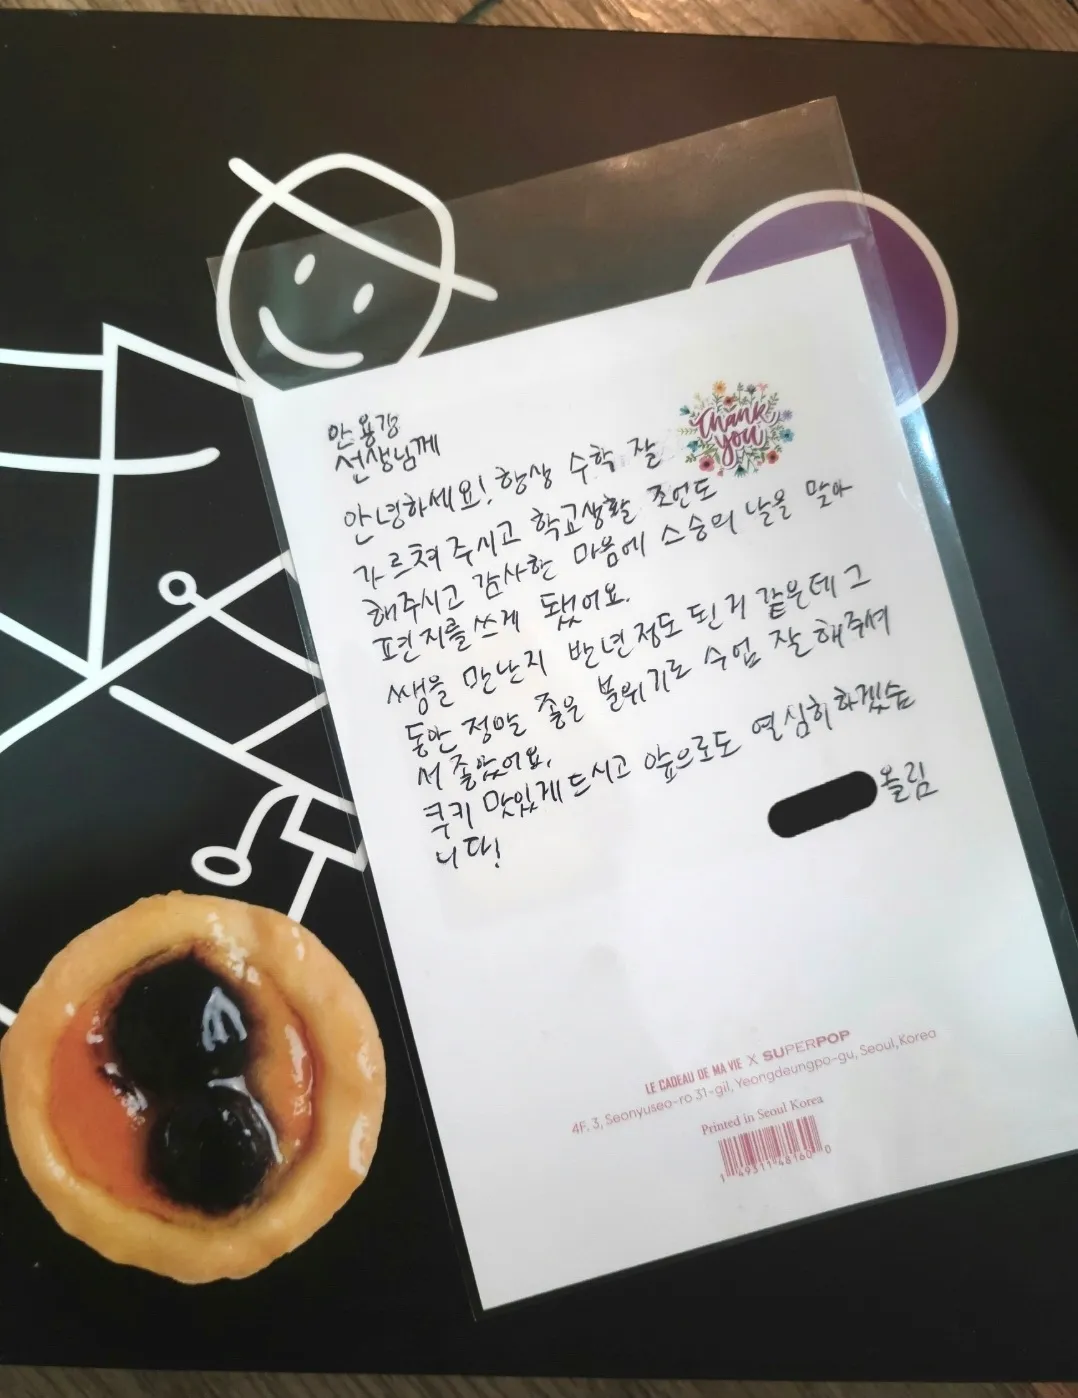 안용강
선생님께
Thank
you
안녕하세요! 항상 수학 잘
가르쳐 주시고 학교생활 조언도
해주시고 감사한 마음에 스승의 날을 맞아
편지를 쓰게 됐어요.
쌤을 만난지 반년정도 된거 같은데 그
동안 정말 좋은 분위기로 수업 잘 해주셔
서 좋았어요.
쿠키 맛있게 드시고 앞으로도 열심히 하겠습
니다!
올림
LE CADEAU DE MA VIE X SUPERPOP
4F, 3, Seonyuseo-ro 31-gil, Yeongdeungpo-gu, Seoul, Korea
Printed in Seoul Korea